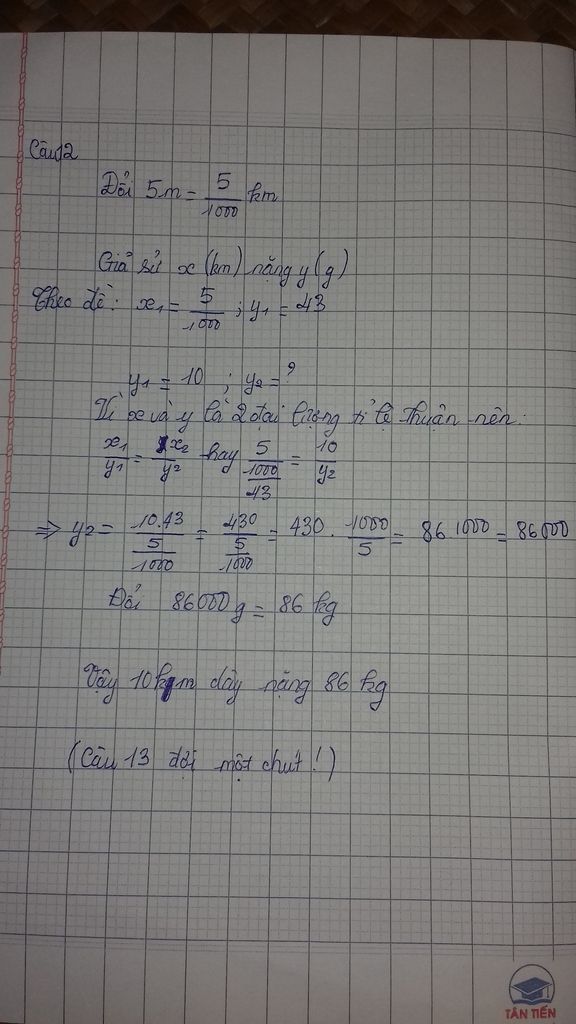 Câu 12
Đổi 5m = 5/1000 km
Giả sử x (km) nặng y (g)
Theo đề: x₁ = 5/1000 ; y₁ = 43
y₁ = 10 ; y₂ = ?
Vì x và y là 2 đại lượng tỉ lệ thuận nên:
x₁/y₁ = x₂/y₂ hay (5/1000)/43 = 10/y₂
⇒ y₂ = (10.43)/(5/1000) = 430/(5/1000) = 430 . 1000/5 = 86 1000 = 86000
Đổi 86000g = 86 kg
Vậy 10km dây nặng 86 kg
(Câu 13 đợi một chút!)
TÂN TIẾN